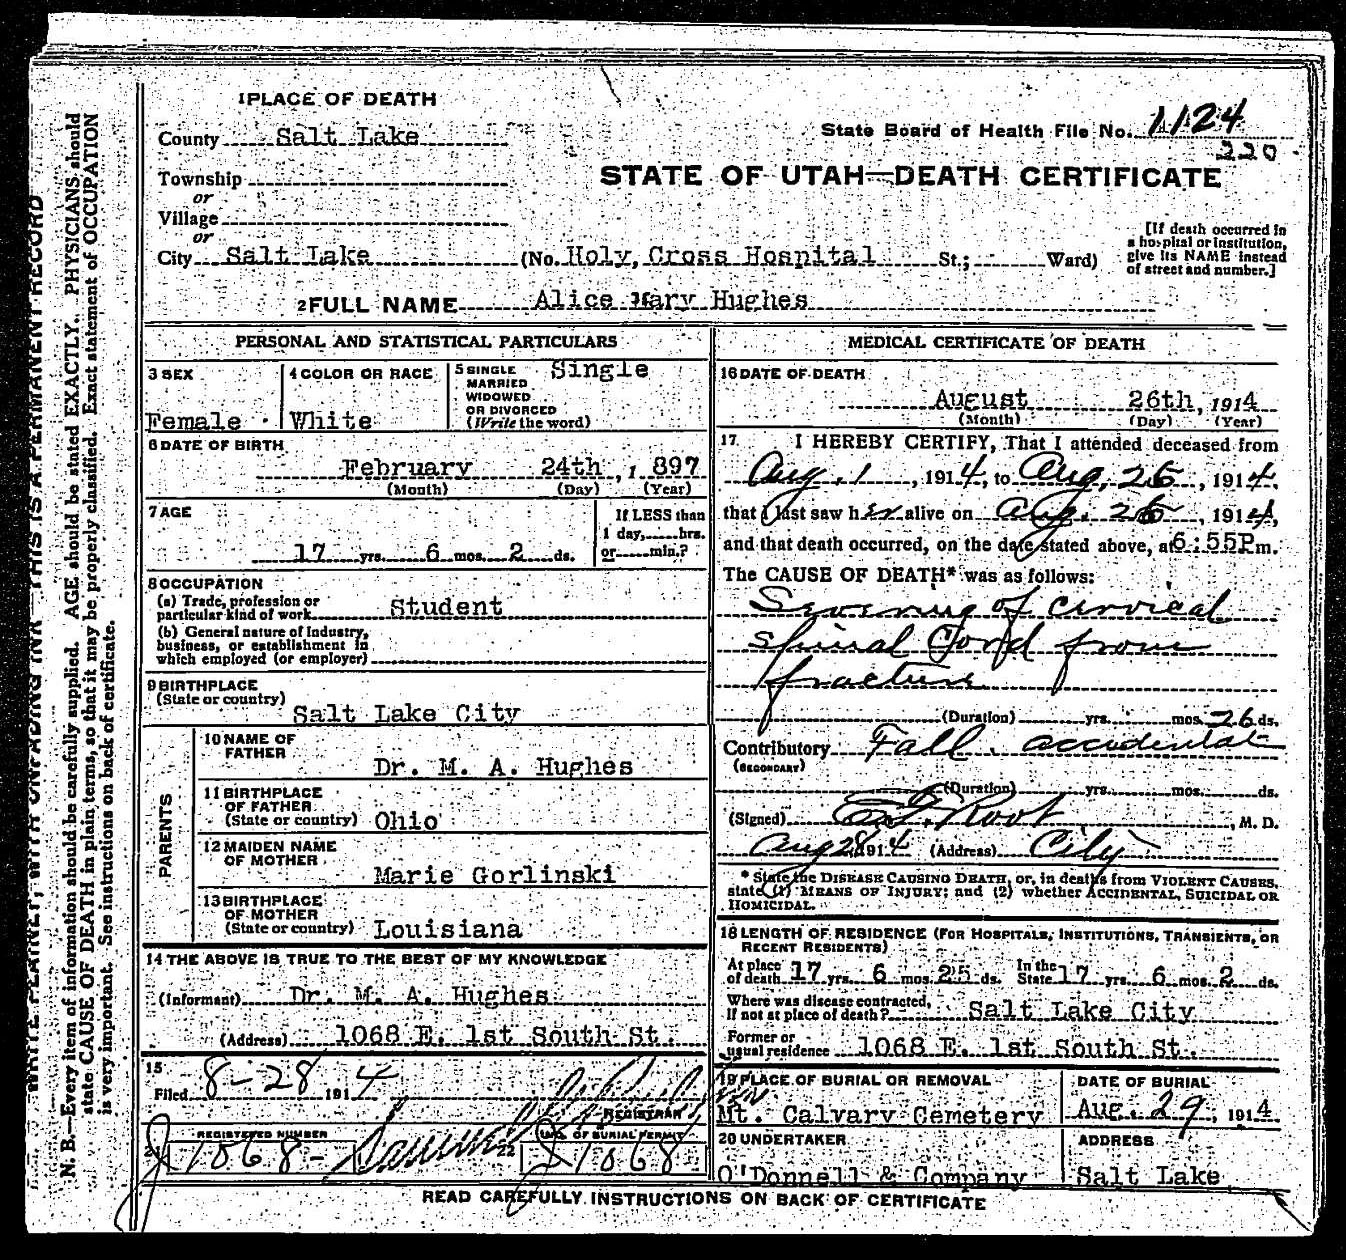 1 PLACE OF DEATH
County Salt Lake
State Board of Health File No. 1124
220
Township
or
Village
or
City Salt Lake (No. Holy Cross Hospital St.; Ward)
STATE OF UTAH—DEATH CERTIFICATE
[If death occurred in
a hospital or institution,
give its NAME instead
of street and number.]
2 FULL NAME Alice Mary Hughes
PERSONAL AND STATISTICAL PARTICULARS
3 SEX
Female
4 COLOR OR RACE
White
5 SINGLE
MARRIED
WIDOWED
OR DIVORCED
(Write the word)
Single
6 DATE OF BIRTH
February 24th, 1 897
(Month) (Day) (Year)
7 AGE
17 yrs. 6 mos. 2 ds.
If LESS than
1 day, hrs.
or min.?
8 OCCUPATION
(a) Trade, profession or
particular kind of work Student
(b) General nature of industry,
business, or establishment in
which employed (or employer)
9 BIRTHPLACE
(State or country)
Salt Lake City
PARENTS
10 NAME OF
FATHER
Dr. M. A. Hughes
11 BIRTHPLACE
OF FATHER
(State or country) Ohio
12 MAIDEN NAME
OF MOTHER
Marie Gorlinski
13 BIRTHPLACE
OF MOTHER
(State or country) Louisiana
14 THE ABOVE IS TRUE TO THE BEST OF MY KNOWLEDGE
(Informant) Dr. M. A. Hughes
(Address) 1068 E. 1st South St.
15
Filed 8-28 1914
REGISTRAR
REGISTERED NUMBER
1068
22
NO. OF BURIAL PERMIT
1068
MEDICAL CERTIFICATE OF DEATH
16 DATE OF DEATH
August 26th, 1914
(Month) (Day) (Year)
17 I HEREBY CERTIFY, That I attended deceased from
Aug. 1, 1914, to Aug. 26, 1914,
that I last saw her alive on Aug. 26, 1914,
and that death occurred, on the date stated above, at 6:55P m.
The CAUSE OF DEATH* was as follows:
Severing of cervical
spinal Cord from
fracture
(Duration) yrs. mos. 26 ds.
Contributory Fall. accidental
(SECONDARY)
(Duration) yrs. mos. ds.
(Signed) Root, M. D.
Aug 28 1914 (Address) City
* State the DISEASE CAUSING DEATH, or, in deaths from VIOLENT CAUSES,
state (1) MEANS OF INJURY; and (2) whether ACCIDENTAL, SUICIDAL OR
HOMICIDAL.
18 LENGTH OF RESIDENCE (FOR HOSPITALS, INSTITUTIONS, TRANSIENTS, OR
RECENT RESIDENTS)
At place
of death 17 yrs. 6 mos. 25 ds. In the
State 17 yrs. 6 mos. 2 ds.
Where was disease contracted,
if not at place of death? Salt Lake City
Former or
usual residence 1068 E. 1st South St.
19 PLACE OF BURIAL OR REMOVAL
Mt. Calvary Cemetery
DATE OF BURIAL
Aug. 29, 1914
20 UNDERTAKER
O'Donnell & Company
ADDRESS
Salt Lake
READ CAREFULLY INSTRUCTIONS ON BACK OF CERTIFICATE
WRITE PLAINLY, WITH UNFADING INK—THIS IS A PERMANENT RECORD
N. B.—Every item of information should be carefully supplied. AGE should be stated EXACTLY. PHYSICIANS should
state CAUSE OF DEATH in plain terms, so that it may be properly classified. Exact statement of OCCUPATION
is very important. See instructions on back of certificate.